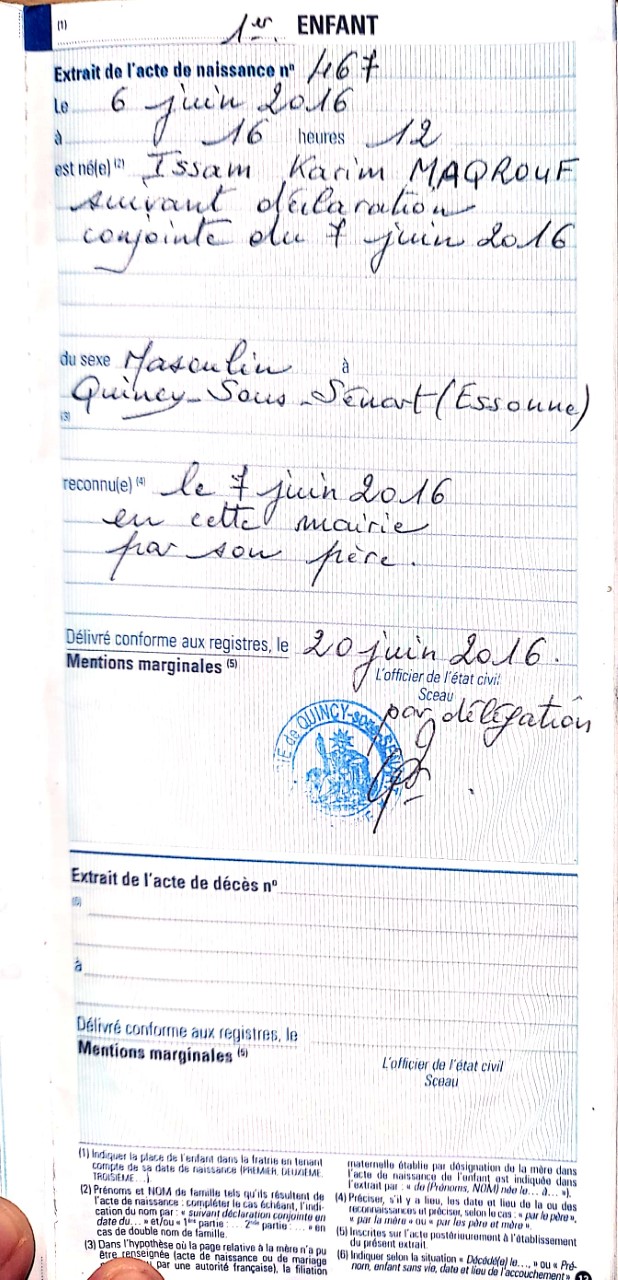 (1) 1er. ENFANT
Extrait de l'acte de naissance n° 467
Le 6 juin 2016
à 16 heures 12
est né(e) (2) Issam Karim MAQROUF
suivant déclaration
conjointe du 7 juin 2016
du sexe Masculin à
Quincy-Sous-Sénart (Essonne)
(3)
reconnu(e) (4) le 7 juin 2016
en cette mairie
par son père.
Délivré conforme aux registres, le 20 juin 2016.
Mentions marginales (5)
L'officier de l'état civil
Sceau
par délégation
DE QUINCY-sous-SÉNART
Extrait de l'acte de décès n°
(6)
à
Délivré conforme aux registres, le
Mentions marginales (5)
L'officier de l'état civil
Sceau
(1) Indiquer la place de l'enfant dans la fratrie en tenant
compte de sa date de naissance (PREMIER, DEUXIÈME,
TROISIÈME...)
(2) Prénoms et NOM de famille tels qu'ils résultent de
l'acte de naissance : compléter le cas échéant, l'indi-
cation du nom par : « suivant déclaration conjointe en
date du... » et/ou « 1re partie : .... 2nde partie : .... » en
cas de double nom de famille.
(3) Dans l'hypothèse où la page relative à la mère n'a pu
être renseignée (acte de naissance ou de mariage
par une autorité française), la filiation
maternelle établie par désignation de la mère dans
l'acte de naissance de l'enfant est indiquée dans
l'extrait par : « de (Prénoms, NOM) née le... à... »).
(4) Préciser, s'il y a lieu, les date et lieu de la ou des
reconnaissances et préciser, selon le cas : « par le père »,
« par la mère » ou « par les père et mère ».
(5) Inscrites sur l'acte postérieurement à l'établissement
du présent extrait.
(6) Indiquer selon la situation « Décédé(e) le.... » ou « Pré-
nom, enfant sans vie, date et lieu de l'accouchement »